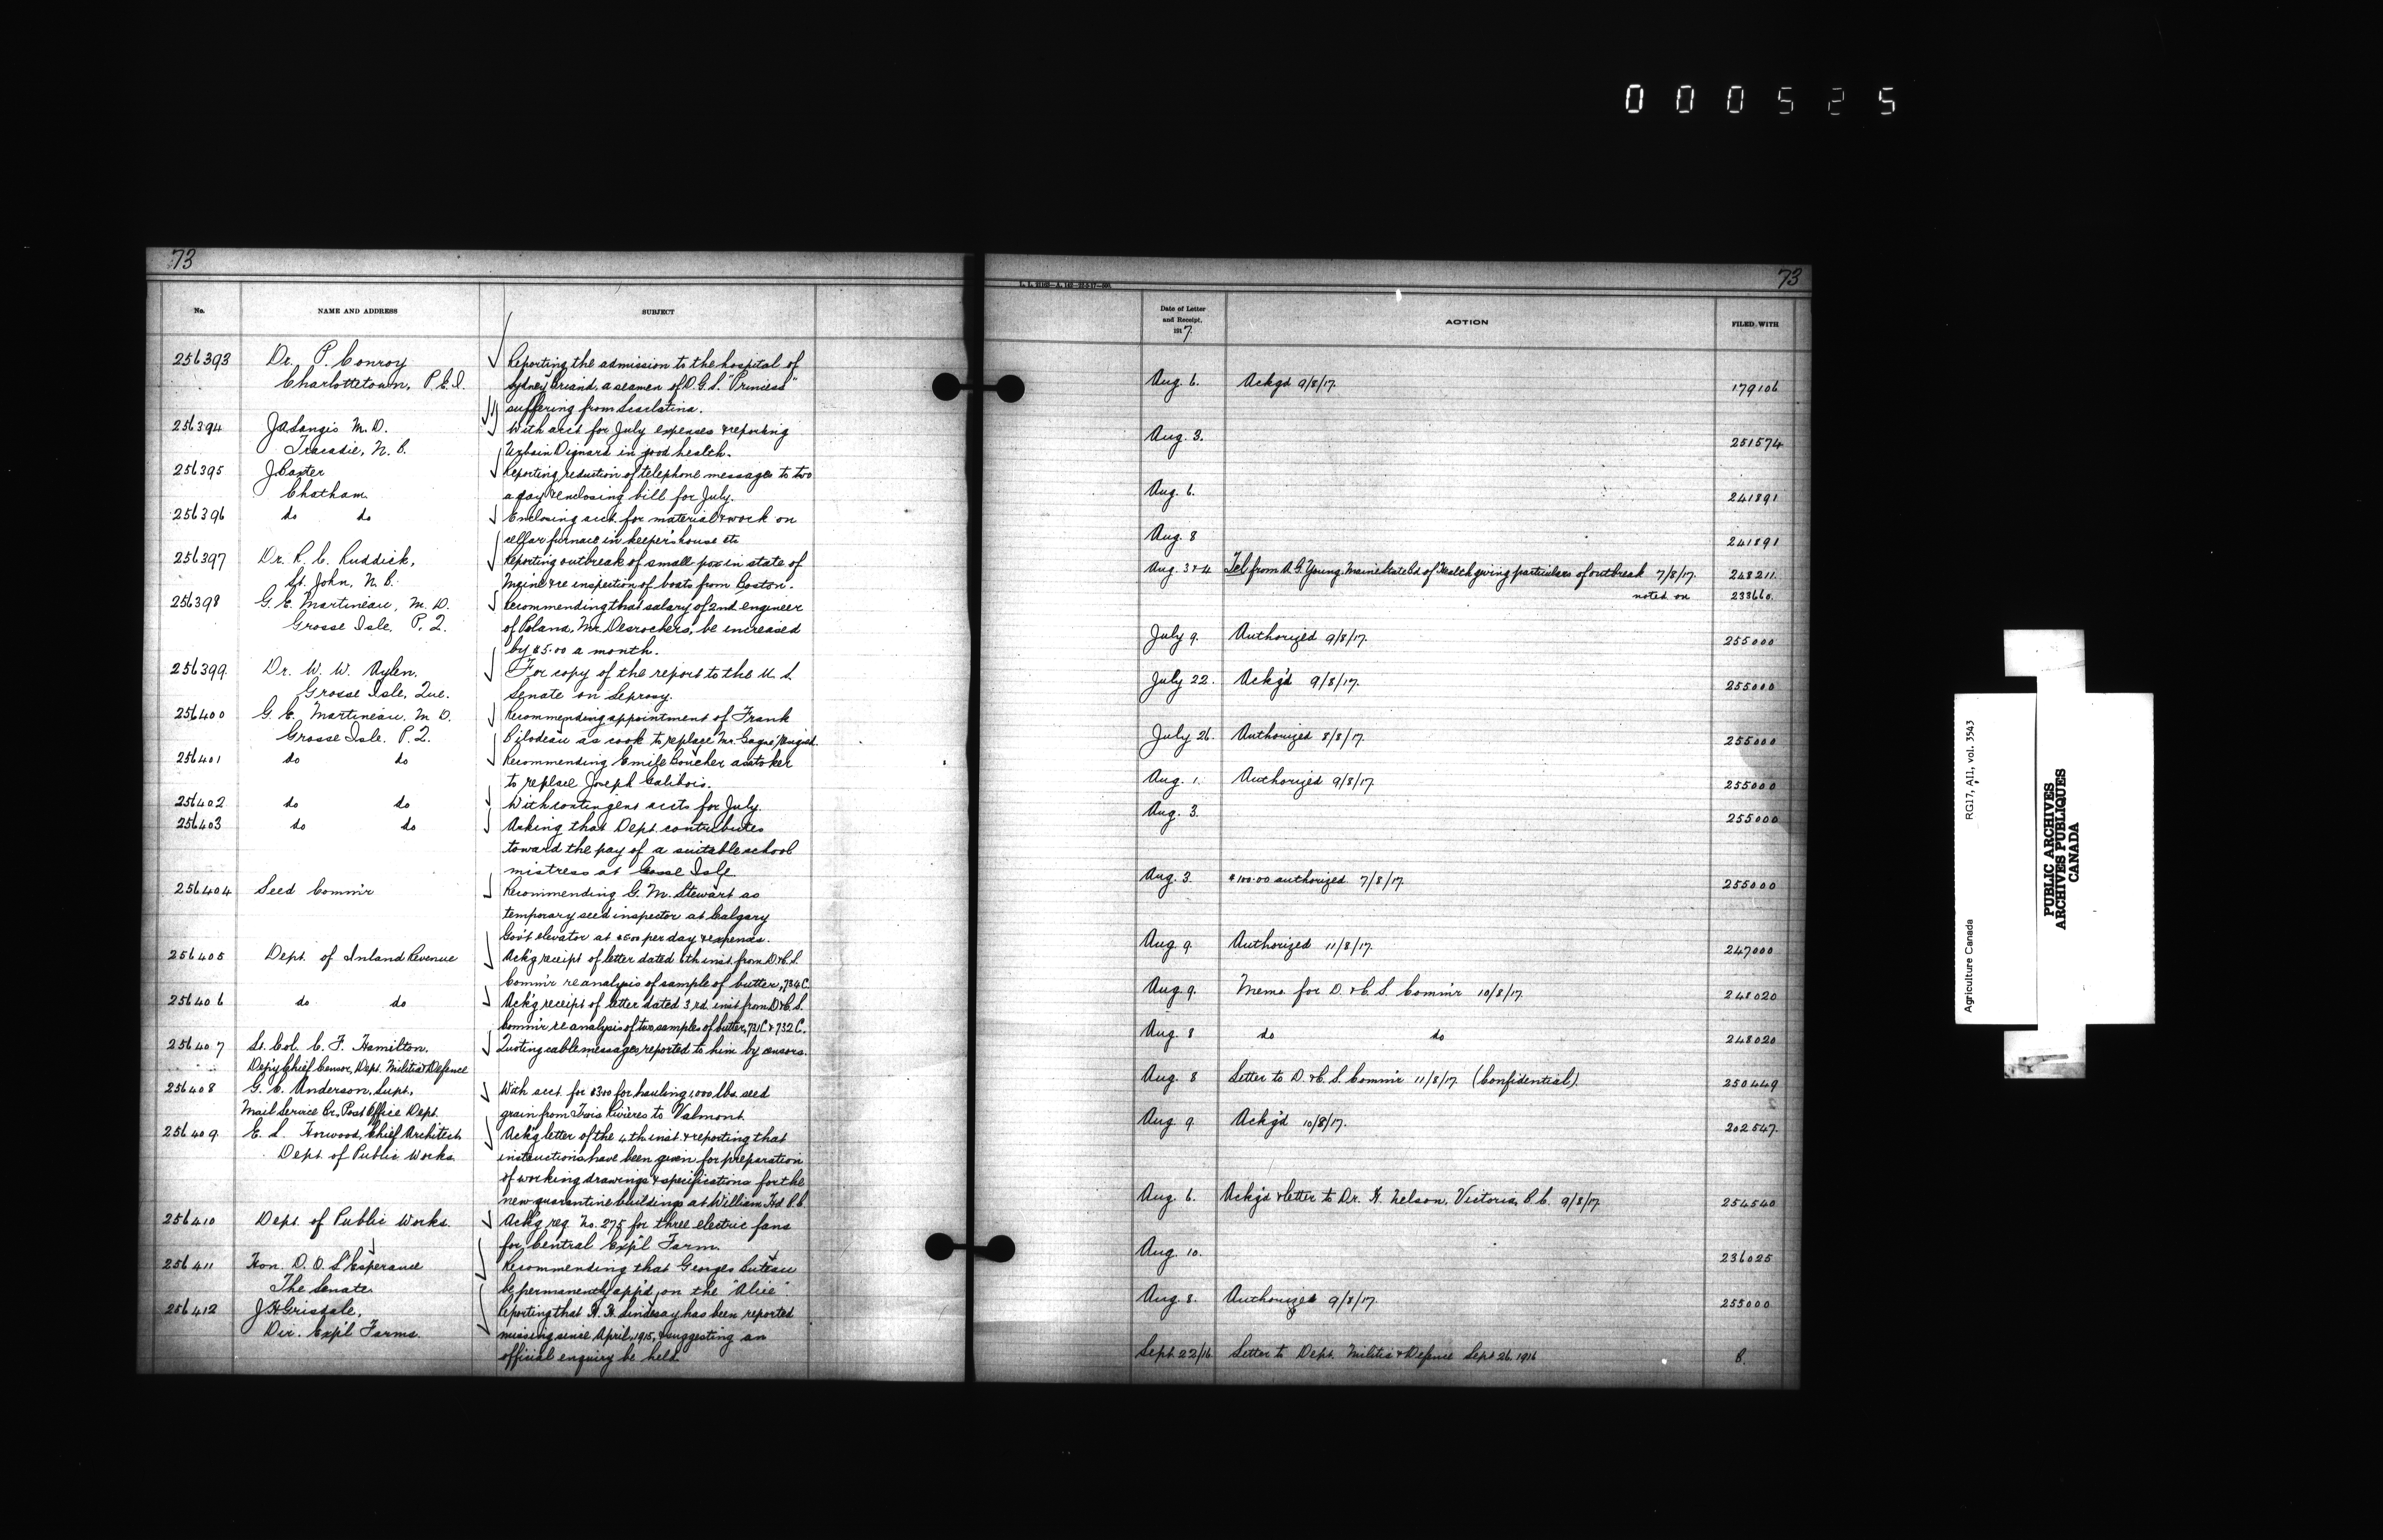 000525
73
No.
NAME AND ADDRESS
SUBJECT
256393
Dr. P. Conroy
Charlottetown, P.E.I.
Reporting the admission to the hospital of
Sydney Briand, a seamen of D.G.S. "Princess"
suffering from Scarlatina.
256394
J A Langis M.D.
Tracadie, N.B.
With acct for July expenses & reporting
Urbain Dignard in good health.
256395
J Baxter
Chatham
Reporting reduction of telephone messages to two
a day & enclosing bill for July.
256396
do do
Enclosing acct. for material & work on
cellar furnace in keeper's house etc
256397
Dr. R. C. Ruddick,
St. John, N.B.
Reporting outbreak of small-pox in state of
Maine & re inspection of boats from Boston.
256398
G. E. Martineau, M.D.
Grosse Isle, P.Q.
Recommending that salary of 2nd engineer
of Poland, Mr. Desrochers, be increased
by $5.00 a month.
256399
Dr. W. W. Aylen,
Grosse Isle, Que.
For copy of the report to the U.S.
Senate on Leprosy.
256400
G. E. Martineau, M.D.
Grosse Isle. P.Q.
Recommending appointment of Frank
Bilodeau as cook to replace Mr. Gagné, resigned.
256401
do do
Recommending Emile Boucher as stoker
to replace Joseph Calibois.
256402
do do
With contingent accts for July.
256403
do do
Asking that Dept. contributes
toward the pay of a suitable school
mistress at Grosse Isle
256404
Seed Comm'r
Recommending G. M. Stewart as
temporary seed inspector at Calgary
Gov't elevator at $5.00 per day & expenses.
256405
Dept. of Inland Revenue
Ack'g receipt of letter dated 6th inst. from D. & C. S.
Comm'r re analysis of sample of butter, 734 C.
256406
do do
Ack'g receipt of letter dated 3rd inst from D. & C. S.
Comm'r re analysis of two samples of butter, 731 C & 732 C.
256407
Lt. Col. C. F. Hamilton,
Dep'y Chief Censor, Dept. Militia & Defence
Quoting cable messages reported to him by censors.
256408
G. C. Anderson, Supt.,
Mail Service Br., Post Office Dept.
With acct. for $3.00 for hauling 1,000 lbs. seed
grain from Trois Rivieres to Valmont.
256409
E. L. Horwood, Chief Architect
Dept. of Public Works.
Ack'g letter of the 4th inst. & reporting that
instructions have been given for preparation
of working drawings & specifications for the
new quarantine buildings at William Hd B.C.
256410
Dept. of Public Works.
Ack'g req. No. 275 for three electric fans
for Central Exp'l Farm.
256411
Hon. D. O. L'Esperance
The Senate
Recommending that Georges Buteau
be permanently app'd, on the "Alice".
256412
J H Grisdale,
Dir. Exp'l Farms.
Reporting that H. H. Lindesay has been reported
missing since April, 1915, & suggesting an
official enquiry be held.
73
Date of Letter
and Receipt.
1917.
ACTION
FILED WITH
Aug. 6. Ackgd 9/8/17. 179106
Aug. 3. 251574
Aug. 6. 241891
Aug. 8 241891
Aug. 3 & 4 Tel from A. G. Young, Maine State Bd of Health giving particulars of outbreak 7/8/17. 248211.
noted on 233660.
July 9. Authorized 9/8/17. 255000
July 22. Ackg'd 9/8/17. 255000
July 26. Authorized 8/8/17. 255000
Aug. 1. Authorized 9/8/17. 255000
Aug. 3. 255000
Aug. 3. $100.00 authorized 7/8/17. 255000
Aug. 9. Authorized 11/8/17. 247000
Aug. 9. Memo. for D. & C. S. Comm'r 10/8/17. 248020
Aug. 8 do do 248020
Aug. 8 Letter to D. & C. S. Comm'r 11/8/17. (Confidential). 250449
Aug. 9. Ackg'd 10/8/17. 202547.
Aug. 6. Ackg'd & letter to Dr. H. Nelson, Victoria, B.C. 9/8/17. 254540
Aug. 10. 236025
Aug. 8. Authorized 9/8/17. 255000
Sept. 22/16 Letter to Dept. Militia & Defence Sept 26. 1916 8.
Agriculture Canada RG17, AI1, vol. 3543
PUBLIC ARCHIVES
ARCHIVES PUBLIQUES
CANADA